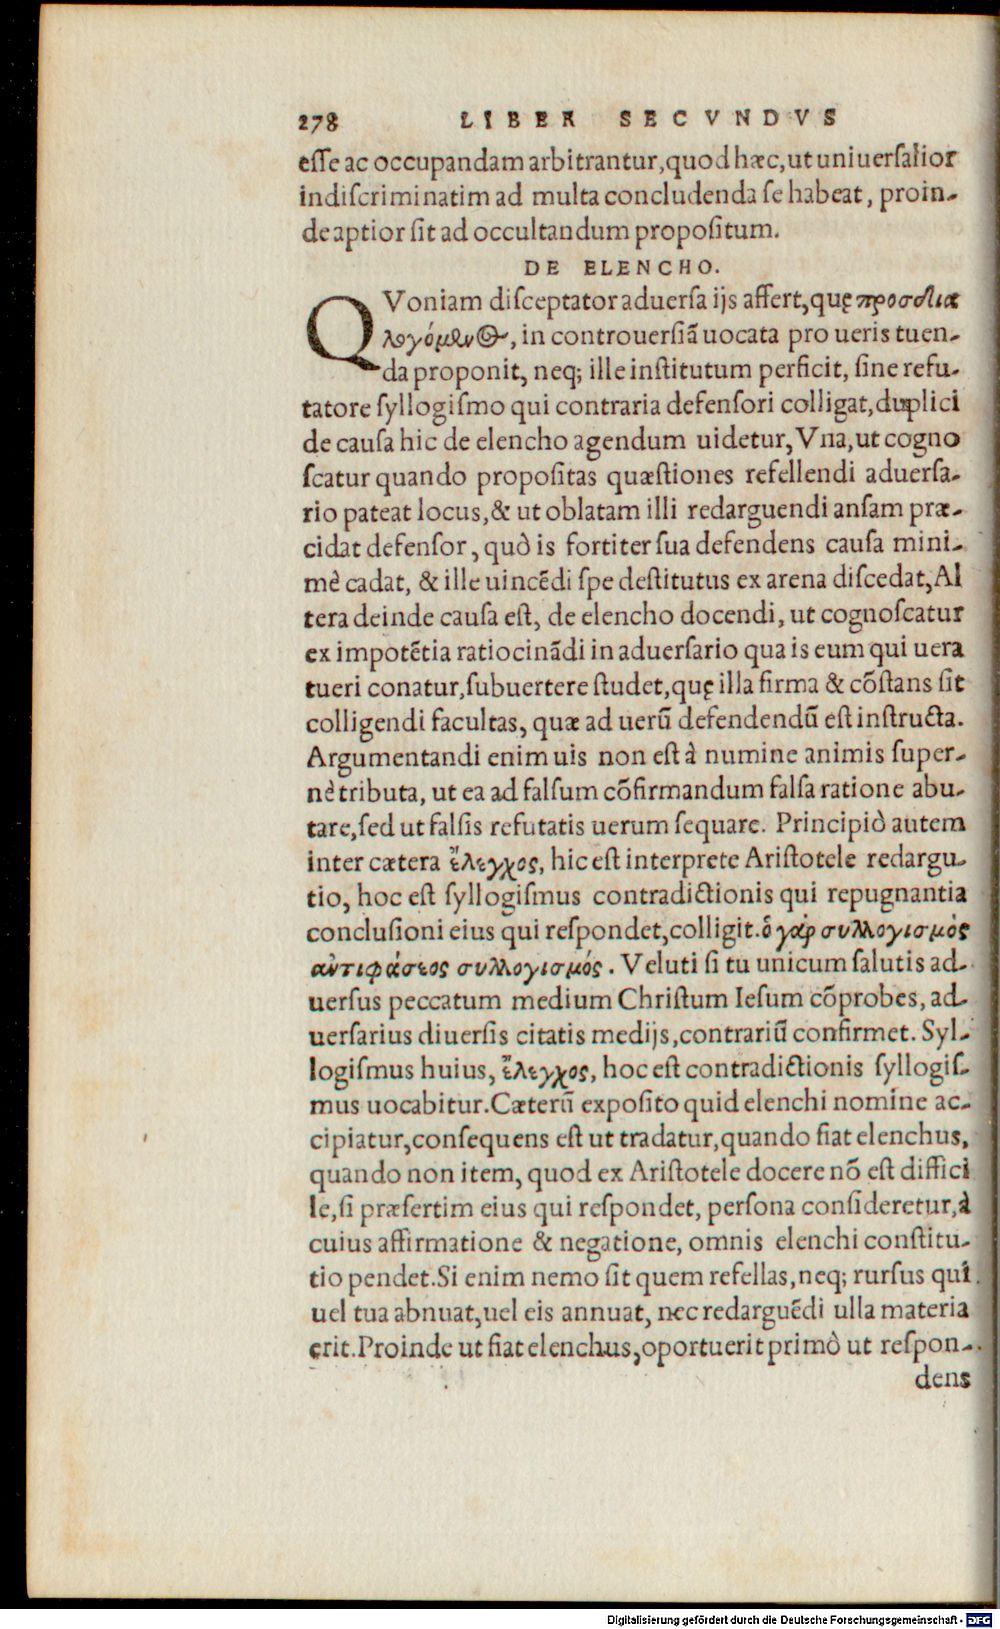 278 LIBER SECVNDVS
esse ac occupandam arbitrantur,quod hæc,ut uniuersalior
indiscriminatim ad multa concludenda se habeat, proin-
de aptior sit ad occultandum propositum.
DE ELENCHO.
QVoniam disceptator aduersa ijs affert,quę προσδια
λογόμενος, in controuersiã uocata pro ueris tuen-
da proponit, neq; ille institutum perficit, sine refu-
tatore syllogismo qui contraria defensori colligat,duplici
de causa hic de elencho agendum uidetur, Vna,ut cogno
scatur quando propositas quæstiones refellendi aduersa-
rio pateat locus,& ut oblatam illi redarguendi ansam præ-
cidat defensor, quò is fortiter sua defendens causa mini-
mè cadat, & ille uincẽdi spe destitutus ex arena discedat,Al
tera deinde causa est, de elencho docendi, ut cognoscatur
ex impotẽtia ratiocinãdi in aduersario qua is eum qui uera
tueri conatur,subuertere studet,quę illa firma & cõstans sit
colligendi facultas, quæ ad uerũ defendendũ est instructa.
Argumentandi enim uis non est à numine animis super-
nè tributa, ut ea ad falsum cõfirmandum falsa ratione abu-
tare,sed ut falsis refutatis uerum sequare. Principiò autem
inter cætera ἔλεγχος, hic est interprete Aristotele redargu-
tio, hoc est syllogismus contradictionis qui repugnantia
conclusioni eius qui respondet,colligit.ὁ γὰρ συλλογισμὸς
ἀντιφάσεος συλλογισμός. Veluti si tu unicum salutis ad-
uersus peccatum medium Christum Iesum cõprobes, ad-
uersarius diuersis citatis medijs,contrariũ confirmet. Syl-
logismus huius, ἔλεγχος, hoc est contradictionis syllogis-
mus uocabitur.Cæterũ exposito quid elenchi nomine ac-
cipiatur,consequens est ut tradatur,quando fiat elenchus,
quando non item, quod ex Aristotele docere nõ est diffici
le,si præsertim eius qui respondet, persona consideretur,à
cuius affirmatione & negatione, omnis elenchi constitu-
tio pendet.Si enim nemo sit quem refellas,neq; rursus qui
uel tua abnuat,uel eis annuat, nec redarguẽdi ulla materia
erit.Proinde ut fiat elenchus,oportuerit primò ut respon-
dens
Digitalisierung gefördert durch die Deutsche Forschungsgemeinschaft - DFG